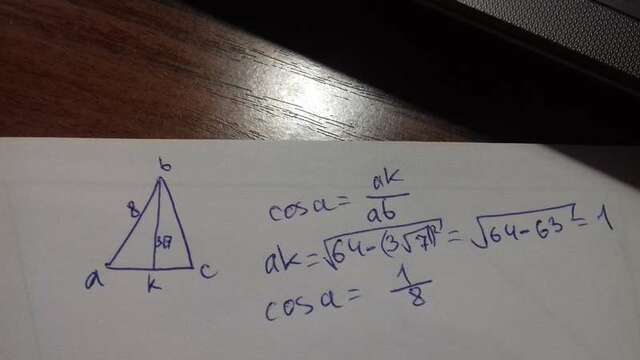 b
8
3√7
a
k
c
cos a = ak/ab
ak = √64-(3√7)² = √64-63 = 1
cos a = 1/8